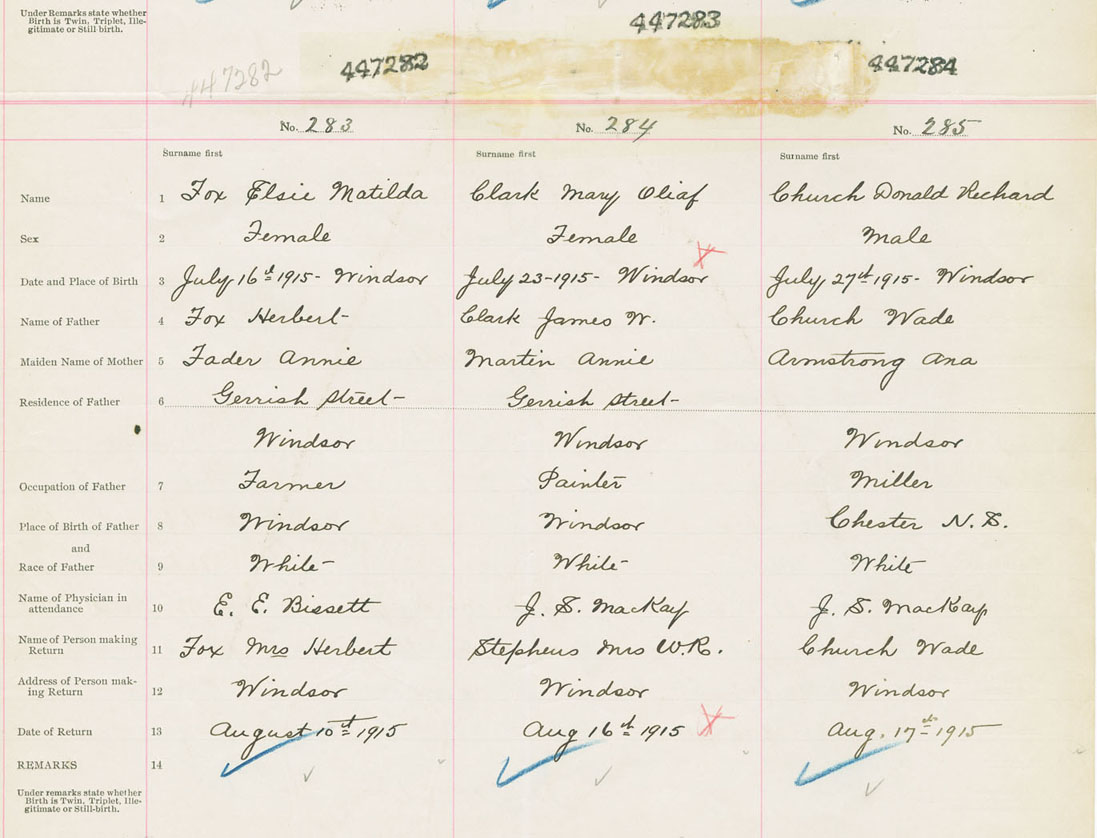 Under Remarks state whether
Birth is Twin, Triplet, Ille-
gitimate or Still birth.
447283
447282 447282 447284
No. 283 No. 284 No. 285
Surname first Surname first Surname first
Name 1 Fox Elsie Matilda Clark Mary Oliaf Church Donald Richard
Sex 2 Female Female Male
Date and Place of Birth 3 July 16th 1915- Windsor July 23-1915- Windsor July 27th 1915- Windsor
Name of Father 4 Fox Herbert- Clark James W. Church Wade
Maiden Name of Mother 5 Fader Annie Martin Annie Armstrong Ana
Residence of Father 6 Gerrish Street- Gerrish Street-
Windsor Windsor Windsor
Occupation of Father 7 Farmer Painter Miller
Place of Birth of Father 8 Windsor Windsor Chester N.S.
and
Race of Father 9 White- White- White
Name of Physician in
attendance 10 E. E. Bissett J. S. MacKay J. S. MacKay
Name of Person making
Return 11 Fox Mrs Herbert Stephens Mrs W.R. Church Wade
Address of Person mak-
ing Return 12 Windsor Windsor Windsor
Date of Return 13 August 10th 1915 Aug 16th 1915 Aug. 17th 1915
REMARKS 14
Under remarks state whether
Birth is Twin, Triplet, Ille-
gitimate or Still-birth.